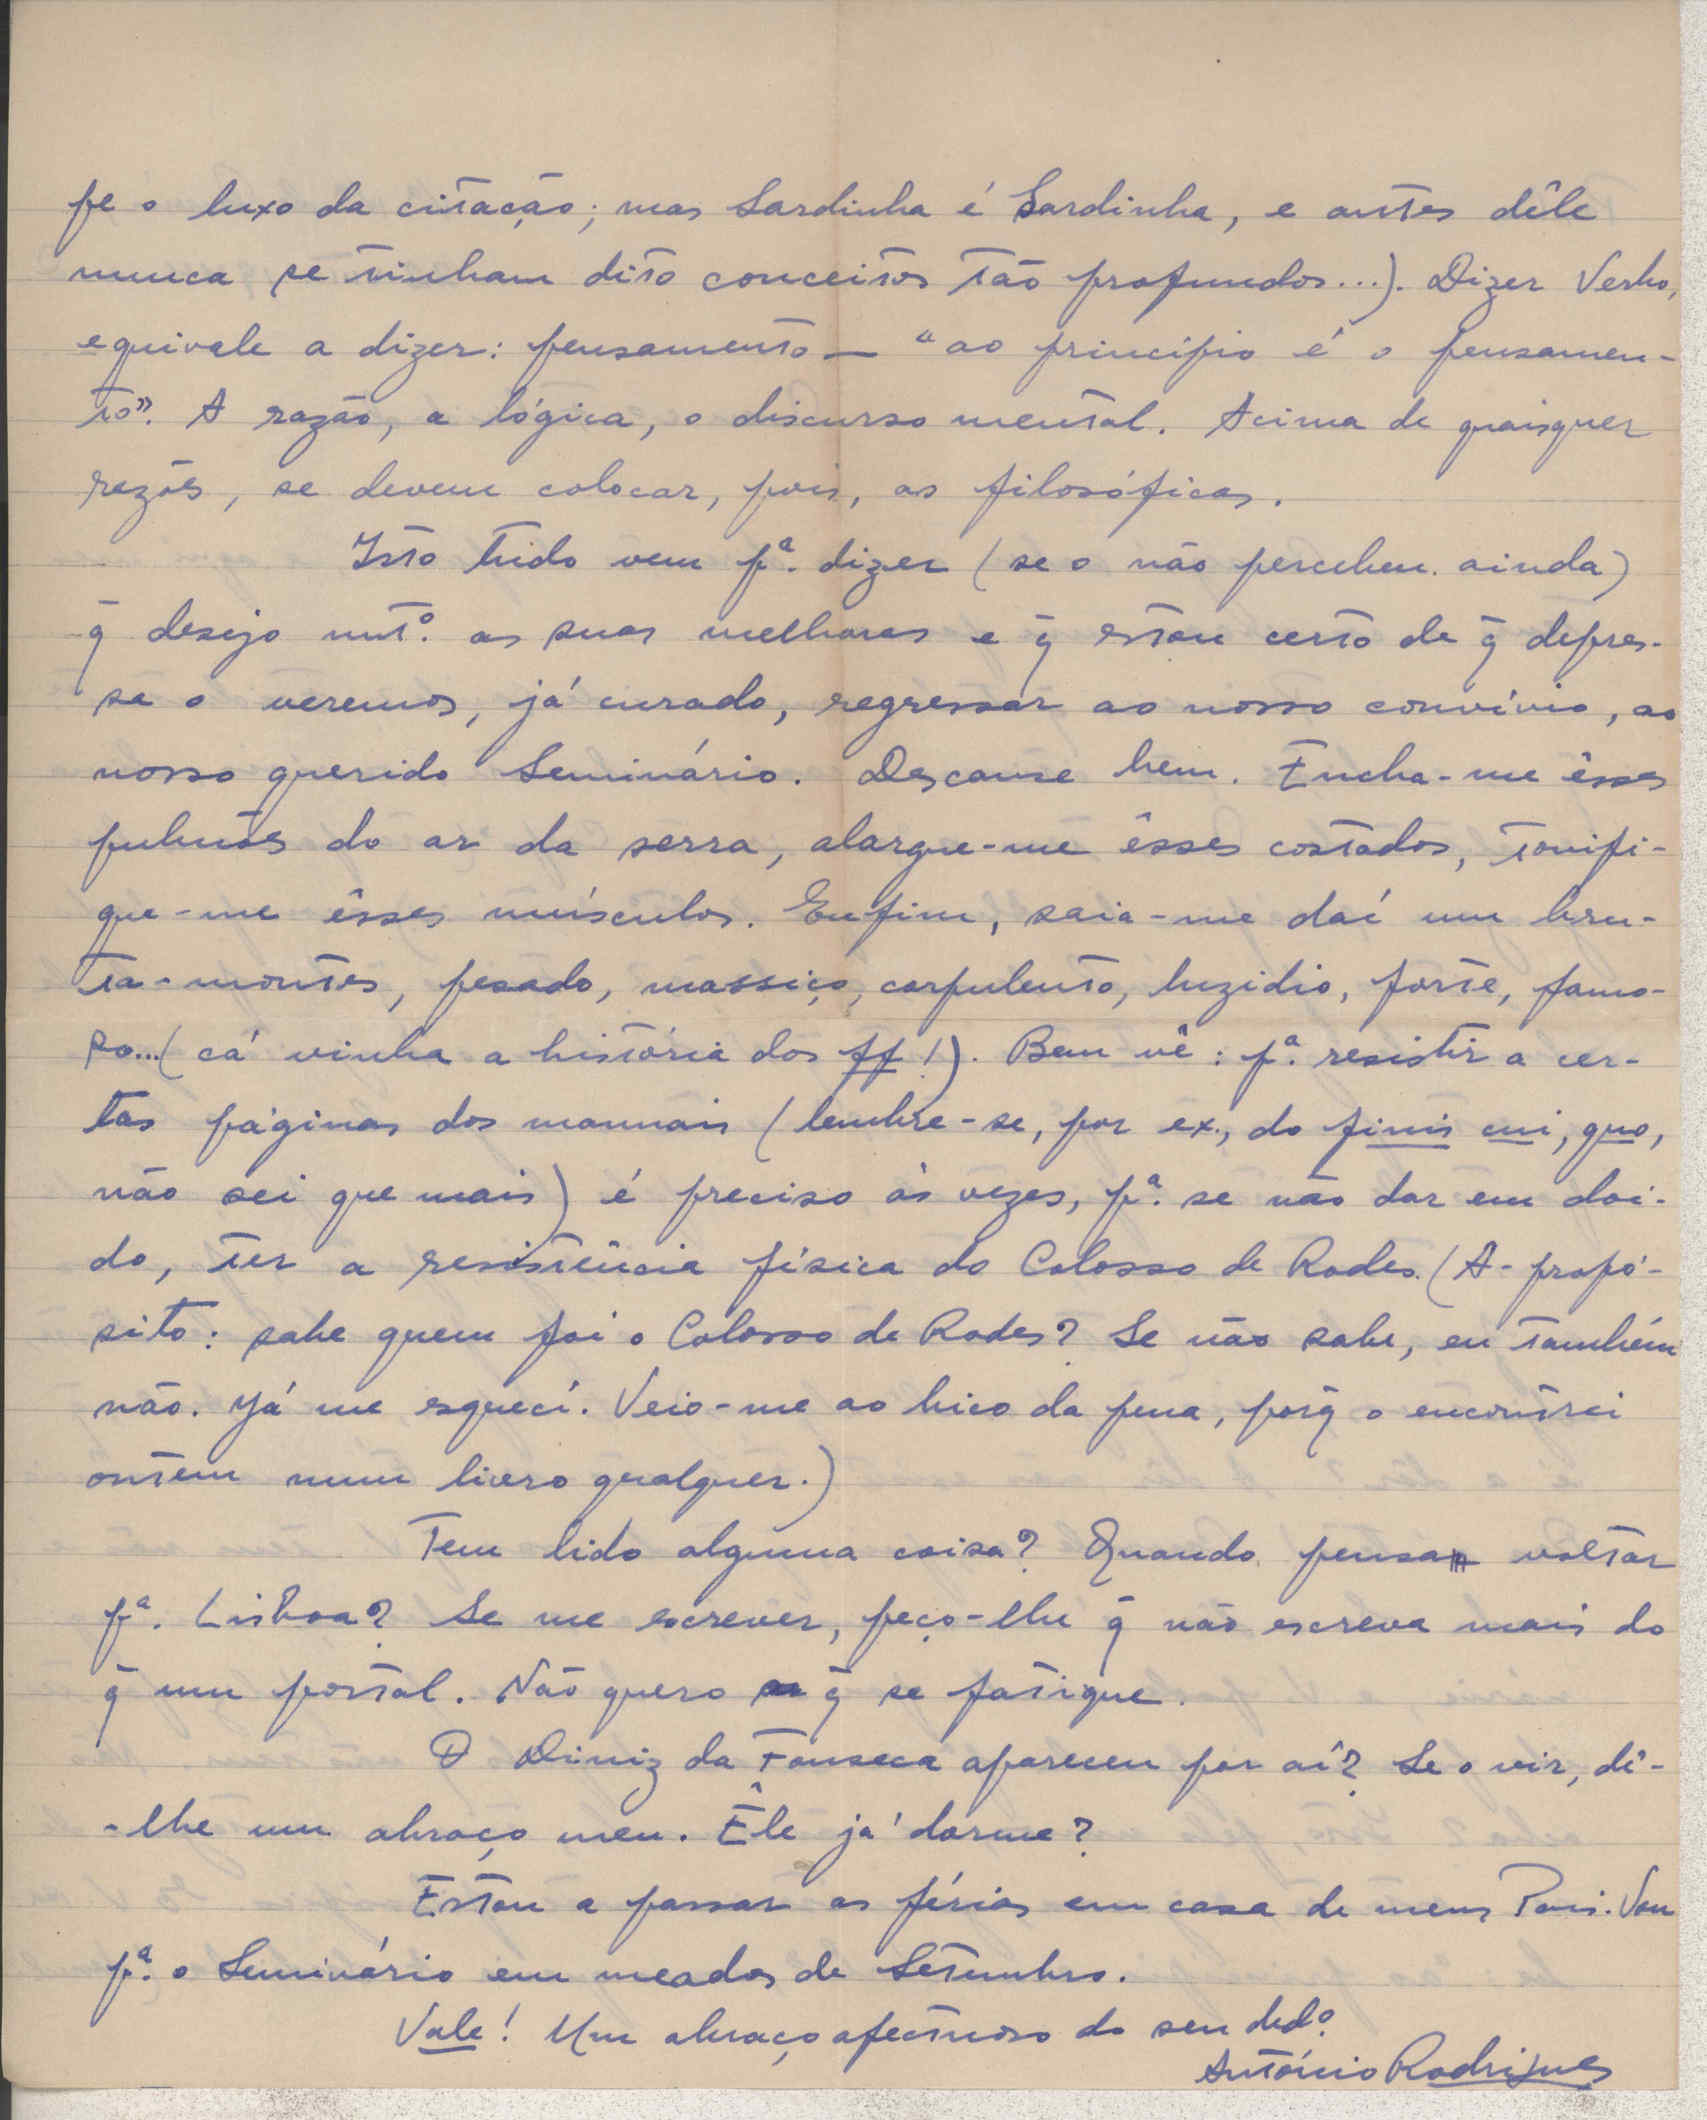 se o luxo da citação; mas Sardinha é Sardinha, e antes dêle
nunca se tinham dito conceitos tão profundos...). Dizer Verbo,
equivale a dizer: pensamento — "ao princípio é o pensamen-
to". A razão, a lógica, o discurso mental. Acima de quaisquer
rezões, se devem colocar, pois, as filosóficas.
Isto tudo vem pª. dizer (se o não percebeu ainda)
q̃ desejo mtº. as suas melhoras e q̃ estou certo de q̃ depres-
sa o veremos, já curado, regressar ao nosso convívio, ao
nosso querido Seminário. Descanse bem. Encha-me êsses
pulmões do ar da serra, alargue-me êsses costados, tonifi-
que-me êsses músculos. Enfim, saia-me daí um bru-
ta-montes, pesado, massiço, corpulento, luzidio, forte, famo-
so...(cá vinha a história dos ff!). Bem vê: pª. resistir a cer-
tas páginas dos manuais (lembre-se, por ex., do finis cui, quo,
não sei que mais) é preciso às vezes, pª. se não dar em doi-
do, ter a resistência física do Colosso de Rodes. (A-propó-
sito: sabe quem foi o Colosso de Rodes? Se não sabe, eu também
não. Já me esquecí. Veio-me ao bico da pena, porq̃ o encontrei
ontem num livro qualquer.)
Tem lido alguma coisa? Quando pensa voltar
pª. Lisboa? Se me escrever, peço-lhe q̃ não escreva mais do
q̃ um postal. Não quero q̃ se fatigue.
O Diniz da Fonseca apareceu por aí? Se o vir, dê-
-lhe um abraço meu. Êle já dorme?
Estou a passar as férias em casa de meus Pais. Vou
pª. o Seminário em meados de Setembro.
Vale! Um abraço afectuoso do seu dedº.
António Rodrigues